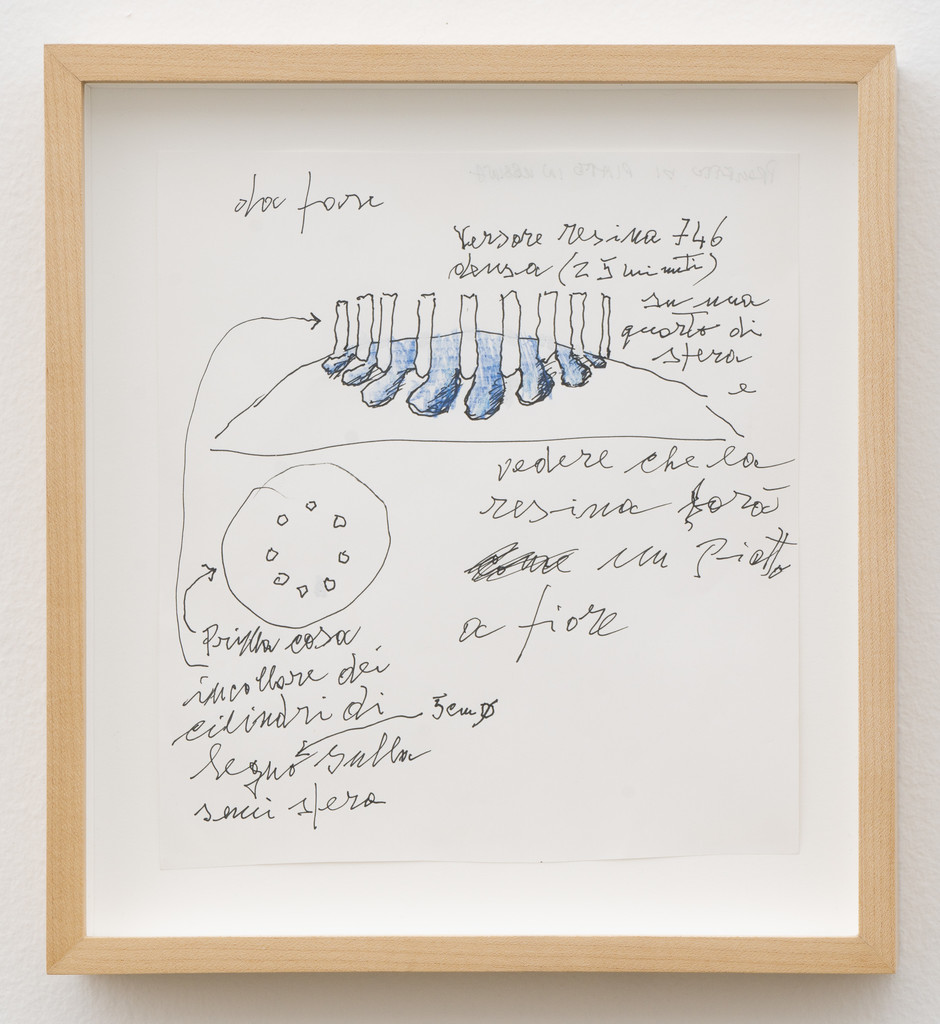 da fare
Versare resina 746
densa (25 minuti)
su una
quarto di
sfera
e
vedere che la
resina farà
un Piatto
a fiore
Prima cosa
incollare dei
cilindri di
5cm Ø
legno sulla
semi sfera